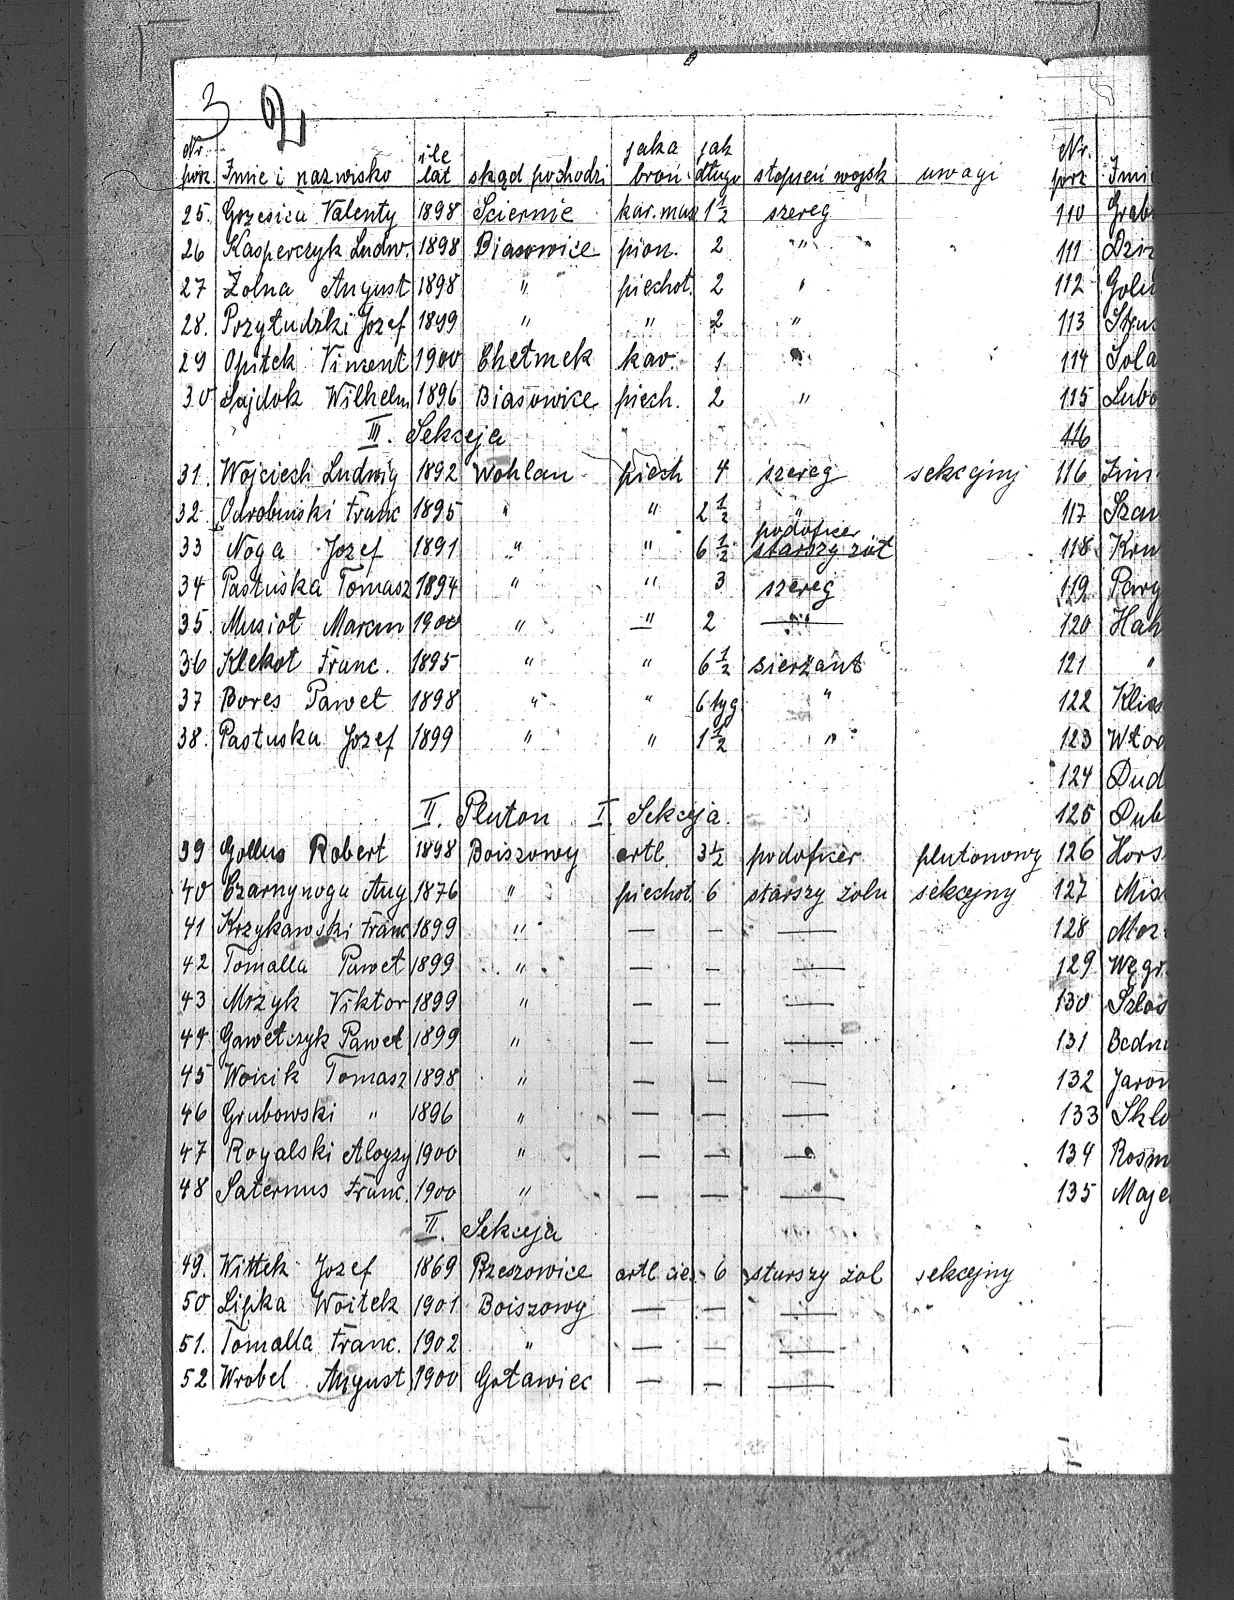 3 2
Nr. porz. Imie i nazwisko ile lat skąd pochodzi jaka broń jak długo stopień wojsk uwagi
25. Grzesica Valenty 1898 Sciernie kar. masz 1 1/2 szereg
26 Kasperczyk Ludw. 1898 Biasowice pion. 2 " "
27 Żolna August 1898 " piechot. 2 "
28. Przyłudzki Jozef 1899 " " 2 "
29 Opitek Vinzent 1900 Chełmek kav. 1 "
30 Sajdok Wilhelm 1896 Biasowice piech. 2 "
III. Sekceja
31. Wojciech Ludwig 1892 Wohlan piech 4 szereg sekcyjny
32. Odrobinski Franc 1895 " " 2 1/2 "
33 Noga Jozef 1891 " " 6 1/2 podoficer starszy żoł
34 Pastuska Tomasz 1894 " " 3 szereg
35. Musioł Marcin 1900 " " 2 "
36 Klekot Franc. 1895 " " 6 1/2 sierżant
37 Bores Paweł 1898 " " 6 tyg "
38. Pastuska Jozef 1899 " " 1 1/2 "
II. Pluton I Sekcyja.
39 Gollus Robert 1898 Boiszowy artl. 3 1/2 podoficer plutonowy
40 Czarnynoga Aug 1876 " piechot. 6 starszy żoln sekcyjny
41 Krzykawski Franc 1899 " — — —
42 Tomalla Paweł 1899 " — — —
43 Mrzyk Viktor 1899 " — — —
44 Gawełczyk Paweł 1899 " — — —
45 Woicik Tomasz 1898 " — — —
46 Grubowski " 1896 " — — —
47 Rogalski Aloyzy 1900 " — — —
48 Saternus Franc. 1900 " — — —
II. Sekceja
49. Wittek Jozef 1869 Przeszowice artl. cież 6 starszy żol sekcyjny
50 Lipka Woitek 1901 Boiszowy — — —
51. Tomalla Franc. 1902 " — — —
52 Wrobel August 1900 Gotawiec — — —
Nr. porz Imie
110 Grab
111 Dziz
112
113
114 Sola
115 Lubo
116
116
117
118 Kru
119
120 Hah
121 "
122
123 Włod
124 Dud
125 Dub
126 Hors
127 Mis
128
129 Węgr
130
131 Bedn
132 Jarom
133 Sklo
134 Rosm
135 Maje